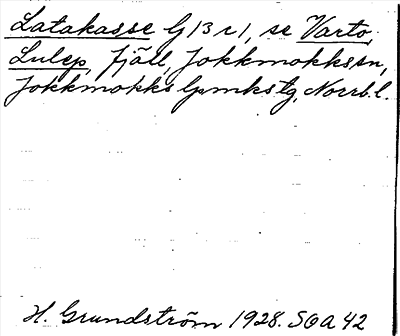 Latakasse G13r1, se Varto,
Lulep, fjäll, Jokkmokks sn,
Jokkmokks lpmkstg, Norrb. l.
H. Grundström 1928. SOA 42